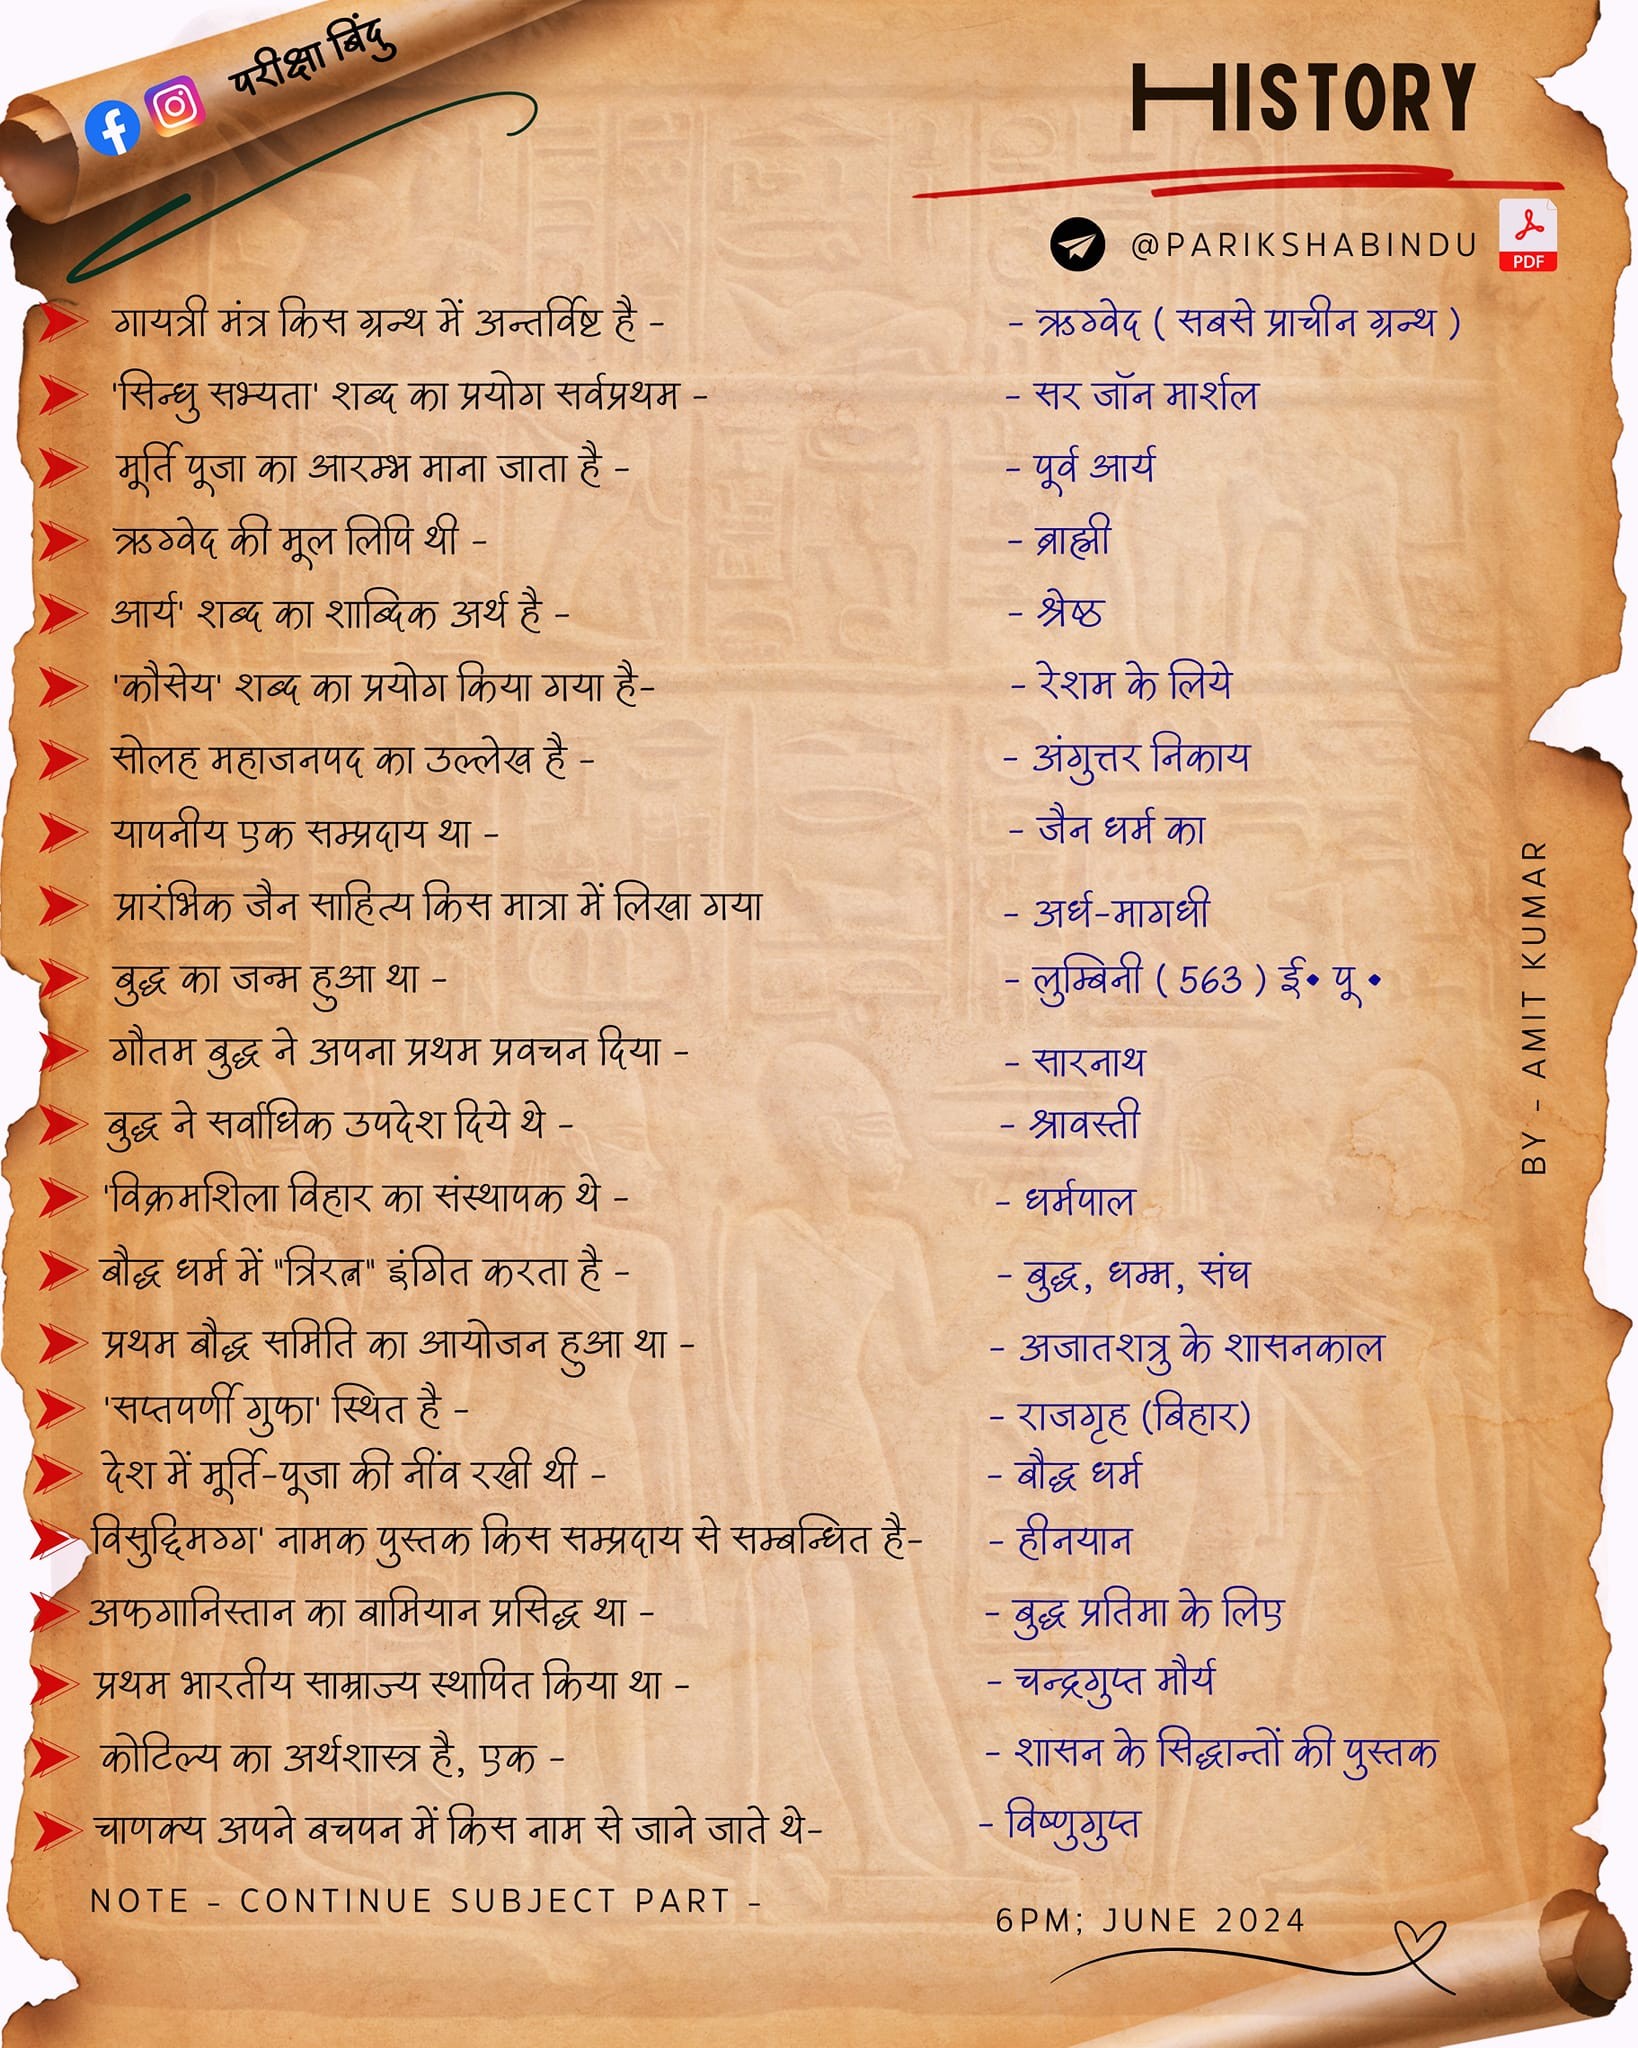 परीक्षा बिंदु
HISTORY
@PARIKSHABINDU
PDF
गायत्री मंत्र किस ग्रन्थ में अन्तर्विष्ट है - - ऋग्वेद ( सबसे प्राचीन ग्रन्थ )
'सिन्धु सभ्यता' शब्द का प्रयोग सर्वप्रथम - - सर जॉन मार्शल
मूर्ति पूजा का आरम्भ माना जाता है - - पूर्व आर्य
ऋग्वेद की मूल लिपि थी - - ब्राह्मी
आर्य' शब्द का शाब्दिक अर्थ है - - श्रेष्ठ
'कौसेय' शब्द का प्रयोग किया गया है- - रेशम के लिये
सोलह महाजनपद का उल्लेख है - - अंगुत्तर निकाय
यापनीय एक सम्प्रदाय था - - जैन धर्म का
प्रारंभिक जैन साहित्य किस मात्रा में लिखा गया - अर्ध-मागधी
बुद्ध का जन्म हुआ था - - लुम्बिनी ( 563 ) ई• पू •
गौतम बुद्ध ने अपना प्रथम प्रवचन दिया - - सारनाथ
बुद्ध ने सर्वाधिक उपदेश दिये थे - - श्रावस्ती
'विक्रमशिला विहार का संस्थापक थे - - धर्मपाल
बौद्ध धर्म में "त्रिरत्न" इंगित करता है - - बुद्ध, धम्म, संघ
प्रथम बौद्ध समिति का आयोजन हुआ था - - अजातशत्रु के शासनकाल
'सप्तपर्णी गुफा' स्थित है - - राजगृह (बिहार)
देश में मूर्ति-पूजा की नींव रखी थी - - बौद्ध धर्म
विसुद्दिमग्ग' नामक पुस्तक किस सम्प्रदाय से सम्बन्धित है- - हीनयान
अफगानिस्तान का बामियान प्रसिद्ध था - - बुद्ध प्रतिमा के लिए
प्रथम भारतीय साम्राज्य स्थापित किया था - - चन्द्रगुप्त मौर्य
कोटिल्य का अर्थशास्त्र है, एक - - शासन के सिद्धान्तों की पुस्तक
चाणक्य अपने बचपन में किस नाम से जाने जाते थे- - विष्णुगुप्त
BY - AMIT KUMAR
NOTE - CONTINUE SUBJECT PART -
6PM; JUNE 2024